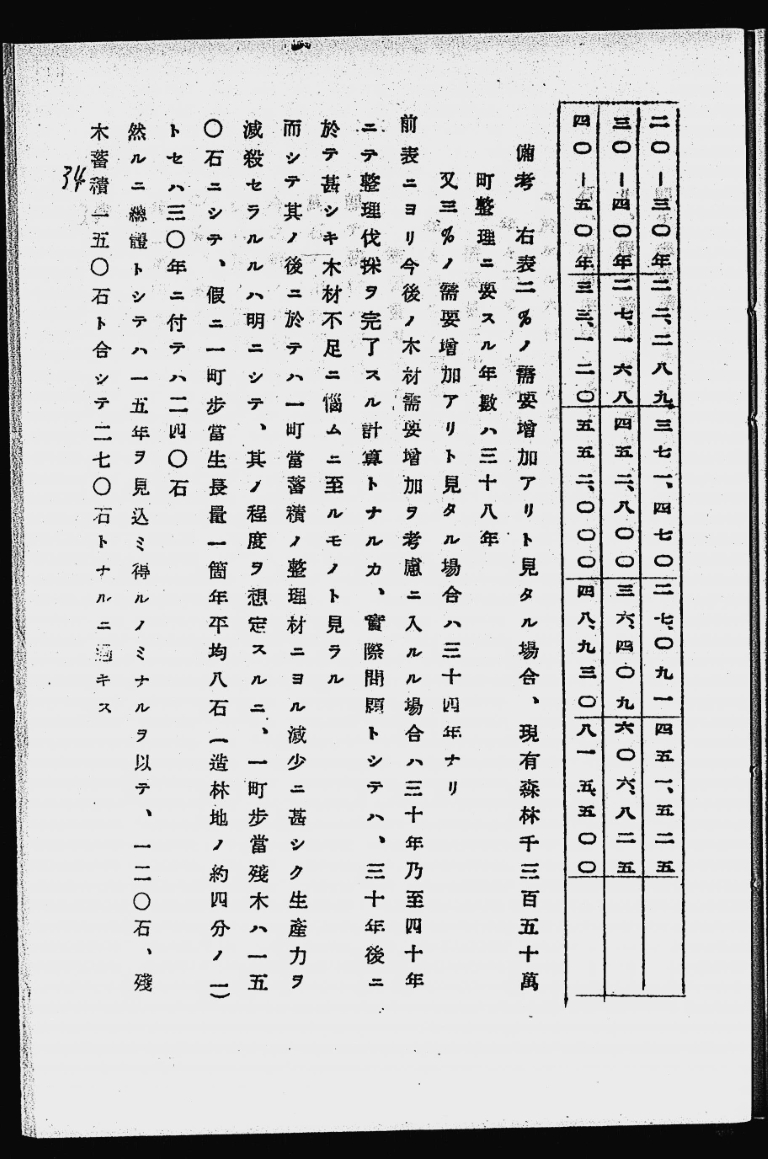 二〇―三〇年 二二、二八九 三七一、四七〇 二七、〇九一 四五一、五二五
三〇―四〇年 二七、一六八 四五二、八〇〇 三六、四〇九 六〇六、八二五
四〇―五〇年 三三、一二〇 五五二、〇〇〇 四八、九三〇 八一五、五〇〇
備考 右表二%ノ需要增加アリト見タル場合、現有森林千三百五十萬
町整理ニ要スル年數ハ三十八年
又三%ノ需要增加アリト見タル場合ハ三十四年ナリ
前表ニヨリ今後ノ木材需要增加ヲ考慮ニ入ルル場合ハ三十年乃至四十年
ニテ整理伐採ヲ完了スル計算トナルカ、實際問題トシテハ、三十年後ニ
於テ甚シキ木材不足ニ惱ムニ至ルモノト見ラル
而シテ其ノ後ニ於テハ一町當蓄積ノ整理材ニヨル減少ニ甚シク生產力ヲ
減殺セラルルハ明ニシテ、其ノ程度ヲ想定スルニ、一町步當殘木ハ一五
〇石ニシテ、假ニ一町步當生長量一箇年平均八石(造林地ノ約四分ノ一)
トセハ三〇年ニ付テハ二四〇石
然ルニ總體トシテハ一五年ヲ見込ミ得ルノミナルヲ以テ、一二〇石、殘
木蓄積一五〇石ト合シテ二七〇石トナルニ過キス
34